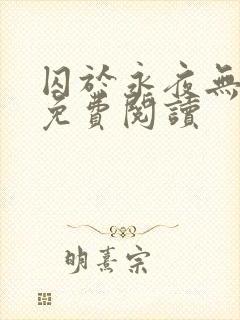 囚於永夜無
免費閱讀
明熹宗